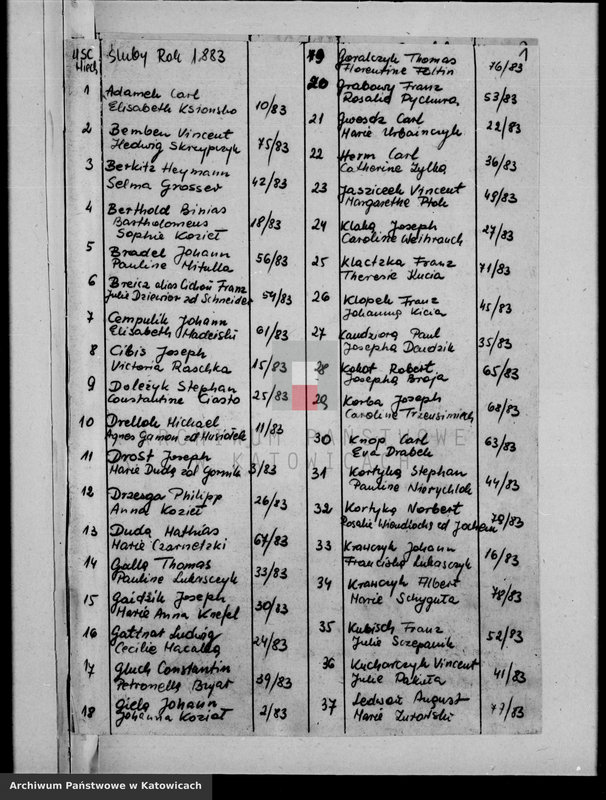 USC Miech
Śluby Rok 1883
1
1 Adamek Carl
Elisabeth Ksionsko 10/83
2 Bemben Vincent
Hedwig Skrzypczyk 75/83
3 Berkitz Heymann
Selma Grosser 42/83
4 Berthold Binias
Bartholomeus
Sophie Kozieł 18/83
5 Bradel Johann
Pauline Mitulla 56/83
6 Breicz alias Franz
Julie Dziewior zd Schneider 54/83
7 Cempulik Johann
Elisabeth 61/83
8 Cibis Joseph
Victoria Raschka 15/83
9 Doleżyk Stephan
Constantine Ciasto 25/83
10 Drellok Michael
Agnes Gamon zd 11/83
11 Drost Joseph
Marie Duda zd Gornik 3/83
12 Drzezga Philipp
Anna Kozieł 26/83
13 Duda Mathias
Marie Czarnetzki 67/83
14 Galla Thomas
Pauline Lukasczyk 33/83
15 Gaidzik Joseph
Marie Anna 30/83
16 Gattnar Ludwig
Cecilie Macalla 24/83
17 Gluch Constantin
Petronella Bryat 39/83
18 Johann
Johanna Kozioł 2/83
19 Goralczyk Thomas
Florentine Foltin 76/83
20 Grabowy Franz
Rosalia Pychura 53/83
21 Gwosdz Carl
Marie Urbainczyk 22/83
22 Herm Carl
Catherine Zylka 36/83
23 Jaszicek Vincent
Margarethe Ptok 49/83
24 Klaka Joseph
Caroline Weihrauch 27/83
25 Klaczka Franz
Theresie Kucia 71/83
26 Klopek Franz
Johanna Kicia 45/83
27 Kaudziora Paul
Josepha Daudzik 35/83
28 Kokot Robert
Josepha Broja 65/83
29 Korba Joseph
Caroline Trzensimiech 68/83
30 Knop Carl
Eva Drabek 63/83
31 Kortyka Stephan
Pauline Nierychlok 44/83
32 Kortyka Norbert
Rosalie zd 79/83
33 Krawczyk Johann
Franciska Lukasczyk 16/83
34 Krawczyk Albert
Marie Schyguła 78/83
35 Kubisch Franz
Julie Sczepanik 52/83
36 Kucharczyk Vincent
Julie Pakuła 41/83
37 Ledwoń August
Marie Żurański 77/83
ARCHIWUM PAŃSTWOWE
W KATOWICACH
Archiwum Państwowe w Katowicach